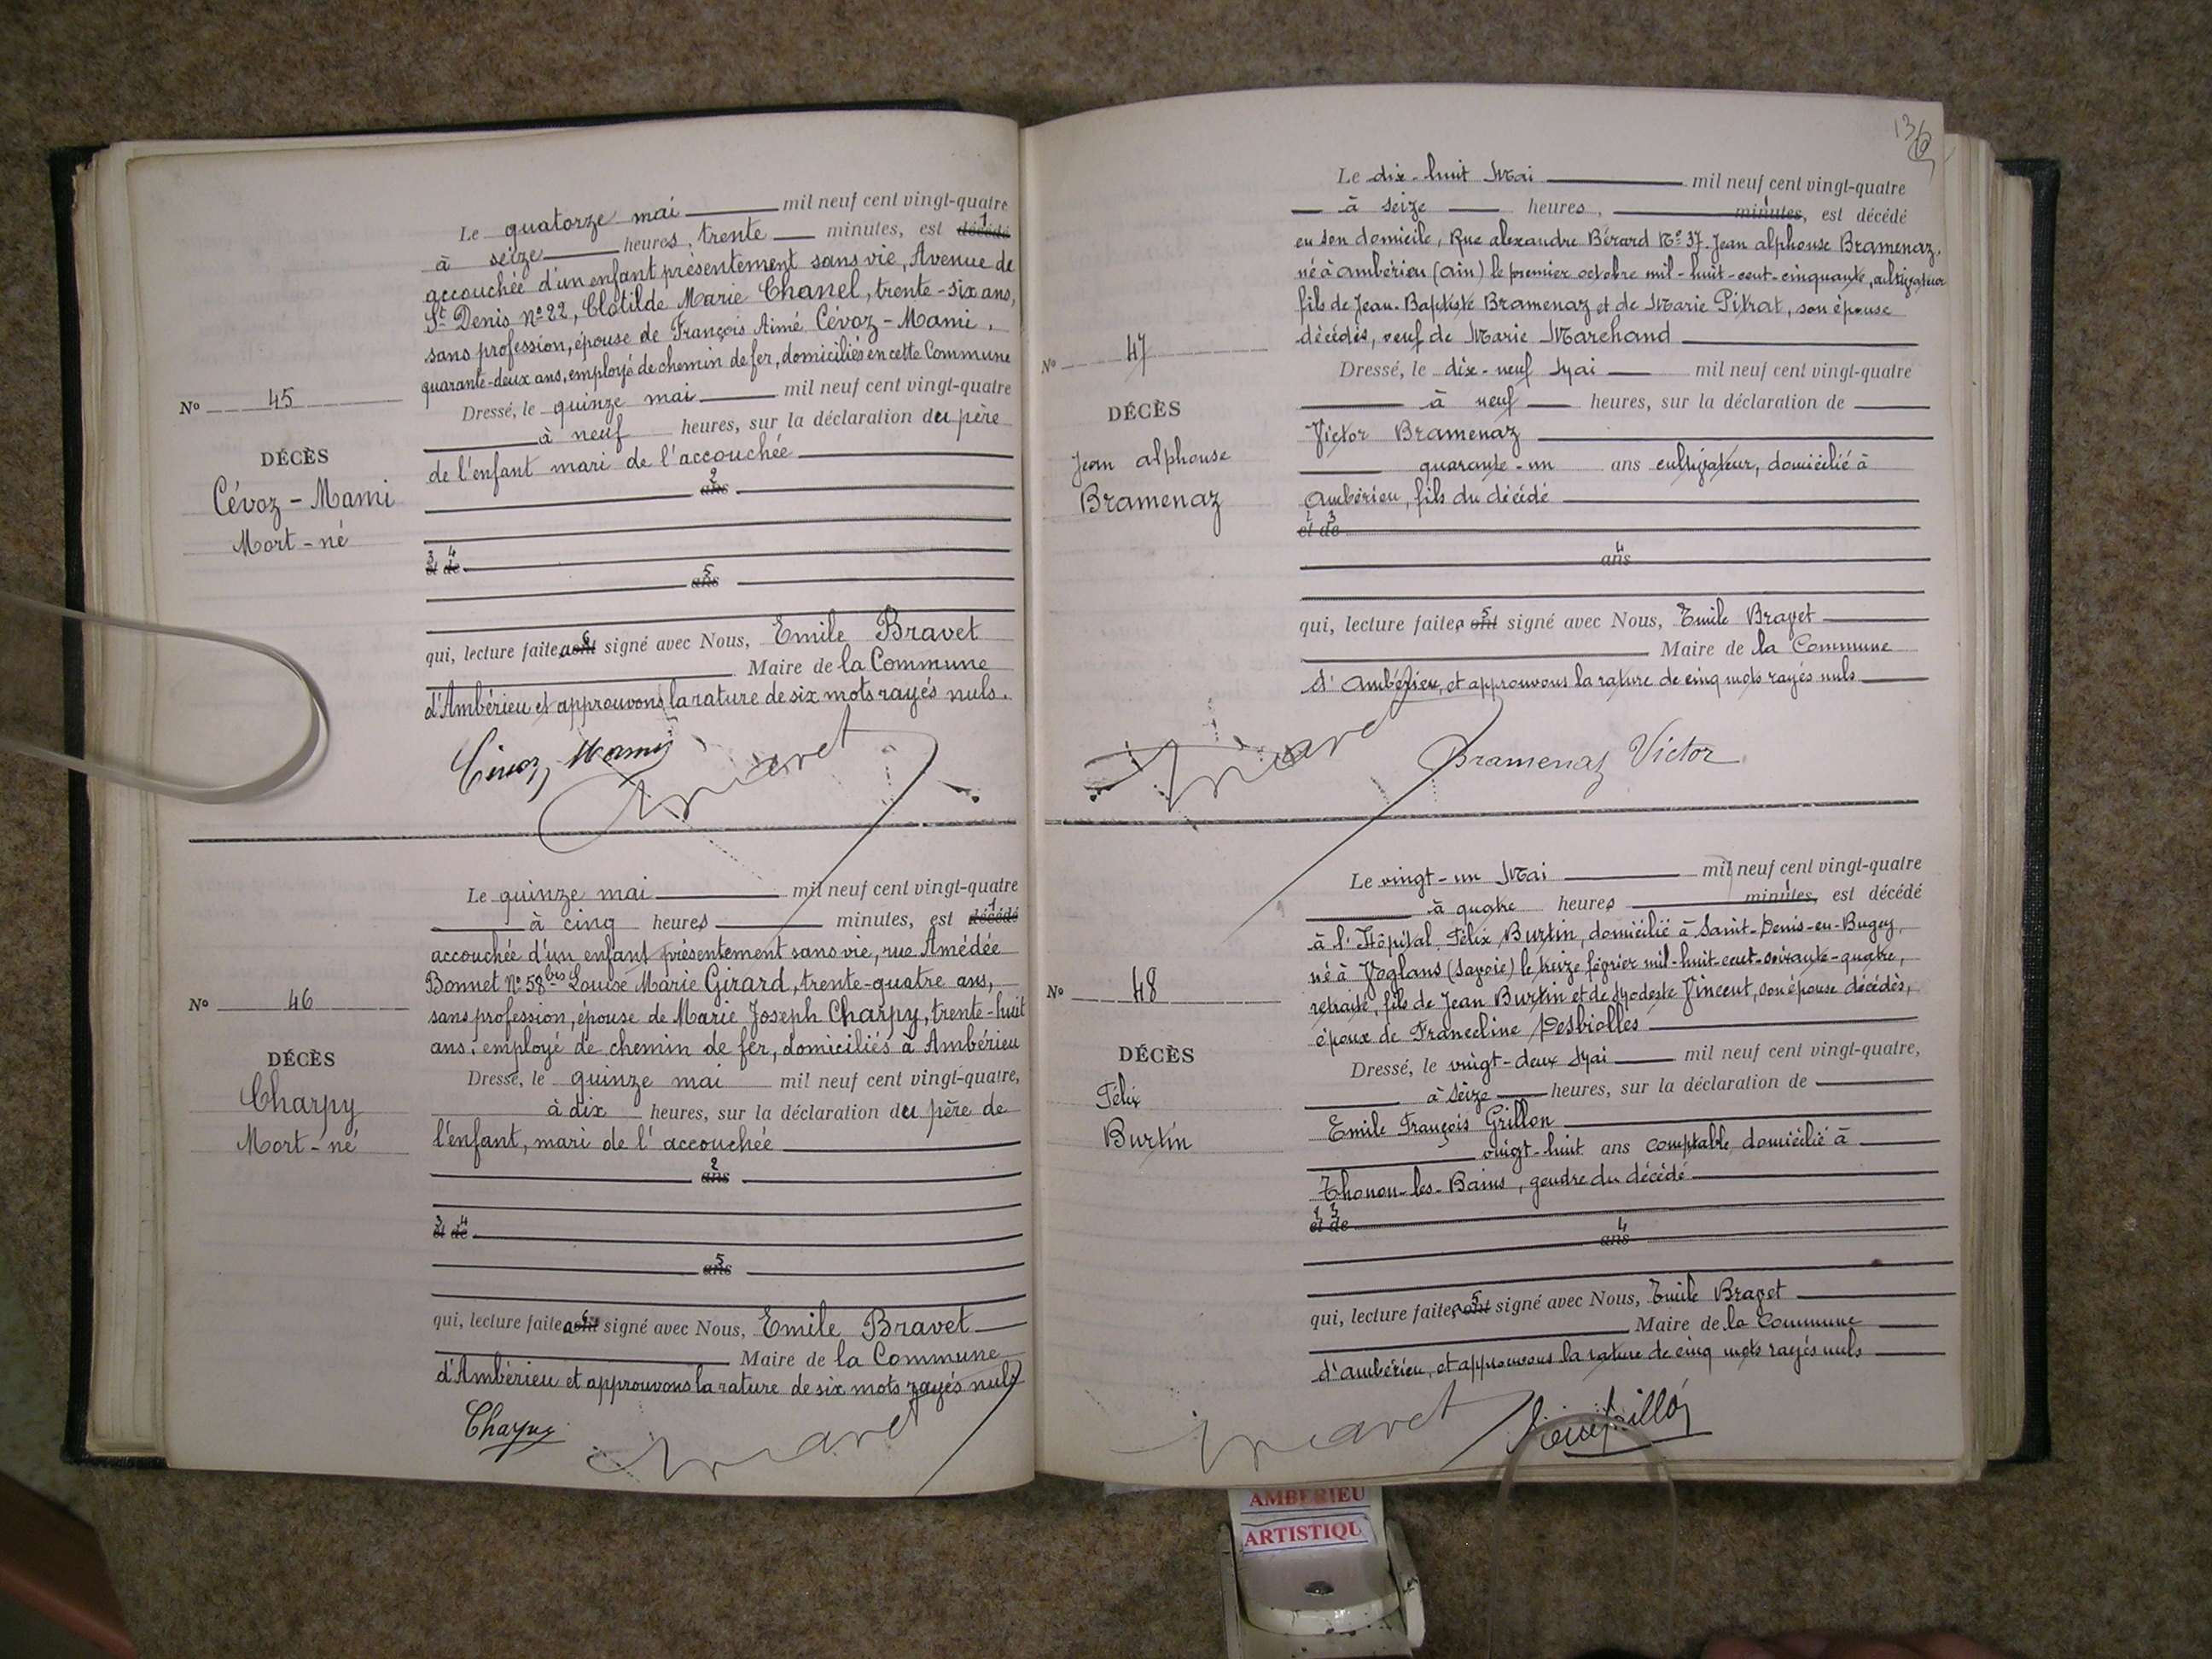 Le quatorze mai mil neuf cent vingt-quatre
à seize heures, trente minutes, est décédé 1
accouchée d'un enfant présentement sans vie, Avenue de
St Denis No 22, Clotilde Marie Chanel, trente-six ans,
sans profession, épouse de François Aimé Cévoz-Mami,
quarante-deux ans, employé de chemin de fer, domiciliés en cette Commune
No 45
Dressé, le quinze mai mil neuf cent vingt-quatre
à neuf heures, sur la déclaration du père
de l'enfant mari de l'accouchée
DÉCÈS
Cévoz-Mami
Mort-né
2 ans
3 et 4 de
5 ans
qui, lecture faite, a 6 ont signé avec Nous, Emile Bravet
Maire de la Commune
d'Ambérieu et approuvons la rature de six mots rayés nuls.
Cévoz-Mami
Bravet
Le quinze mai mil neuf cent vingt-quatre
à cinq heures minutes, est décédé 1
accouchée d'un enfant présentement sans vie, rue Amédée
Bonnet No 58 bis Louise Marie Girard, trente-quatre ans,
No 46
sans profession, épouse de Marie Joseph Charpy, trente-huit
ans, employé de chemin de fer, domiciliés à Ambérieu
DÉCÈS
Charpy
Mort-né
Dressé, le quinze mai mil neuf cent vingt-quatre,
à dix heures, sur la déclaration du père de
l'enfant, mari de l'accouchée
2 ans
3 et 4 de
5 ans
qui, lecture faite a 6 ont signé avec Nous, Emile Bravet
Maire de la Commune
d'Ambérieu et approuvons la rature de six mots rayés nuls
Charpy
Bravet
136
Le dix-huit Mai mil neuf cent vingt-quatre
à seize heures, minutes, est décédé
en son domicile, Rue alexandre Bérard No 37. Jean alphonse Bramenaz,
né à ambérieu (ain) le premier octobre mil-huit-cent-cinquante, cultivateur
fils de Jean-Baptiste Bramenaz et de Marie Pitrat, son épouse
décédés, veuf de Marie Marchand
No 47
Dressé, le dix-neuf Mai mil neuf cent vingt-quatre
à neuf heures, sur la déclaration de
DÉCÈS
Jean alphonse
Bramenaz
Victor Bramenaz
quarante-un ans cultivateur, domicilié à
Ambérieu, fils du décédé
2 et 3 de
4 ans
qui, lecture faite, a 5 ont signé avec Nous, Emile Bravet
Maire de la Commune
d'Ambérieu, et approuvons la rature de cinq mots rayés nuls
Bravet
Bramenaz Victor
Le vingt-un Mai mil neuf cent vingt-quatre
à quatre heures 1 minutes, est décédé
à l'Hôpital, Félix Burtin, domicilié à Saint-Denis-en-Bugey,
né à Voglans (Savoie) le treize février mil-huit-cent-soixante-quatre,
retraité, fils de Jean Burtin et de Modeste Vincent, son épouse décédés,
époux de Franceline Desbiolles
No 48
DÉCÈS
Félix
Burtin
Dressé, le vingt-deux Mai mil neuf cent vingt-quatre,
à seize heures, sur la déclaration de
Emile François Grillon
vingt-huit ans comptable, domicilié à
Thonon-les-Bains, gendre du décédé
2 et 3 de
4 ans
qui, lecture faite, a 5 ont signé avec Nous, Emile Bravet
Maire de la Commune
d'ambérieu, et approuvons la rature de cinq mots rayés nuls
Bravet
AMBERIEU
ARTISTIQU